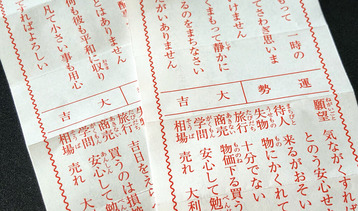 もって 一時の
てさわぎ思いま
けません
くまもって静かに
るのをまちなさい
たいありません
運勢
大吉
願望 気ながくすれば
とのう安心せ
待人 来るがおそい
失物 物にかくれて
旅行 十分でない
商売 物価下る 買
学問 安心して勉
相場 売れ 大利
とはありません
何も彼も平和に収り
凡て小さい事も用心
ればよろしい
大吉
旅行 吉日をえ
商売 買うのは損
学問 安心して勉
相場 売れ 大